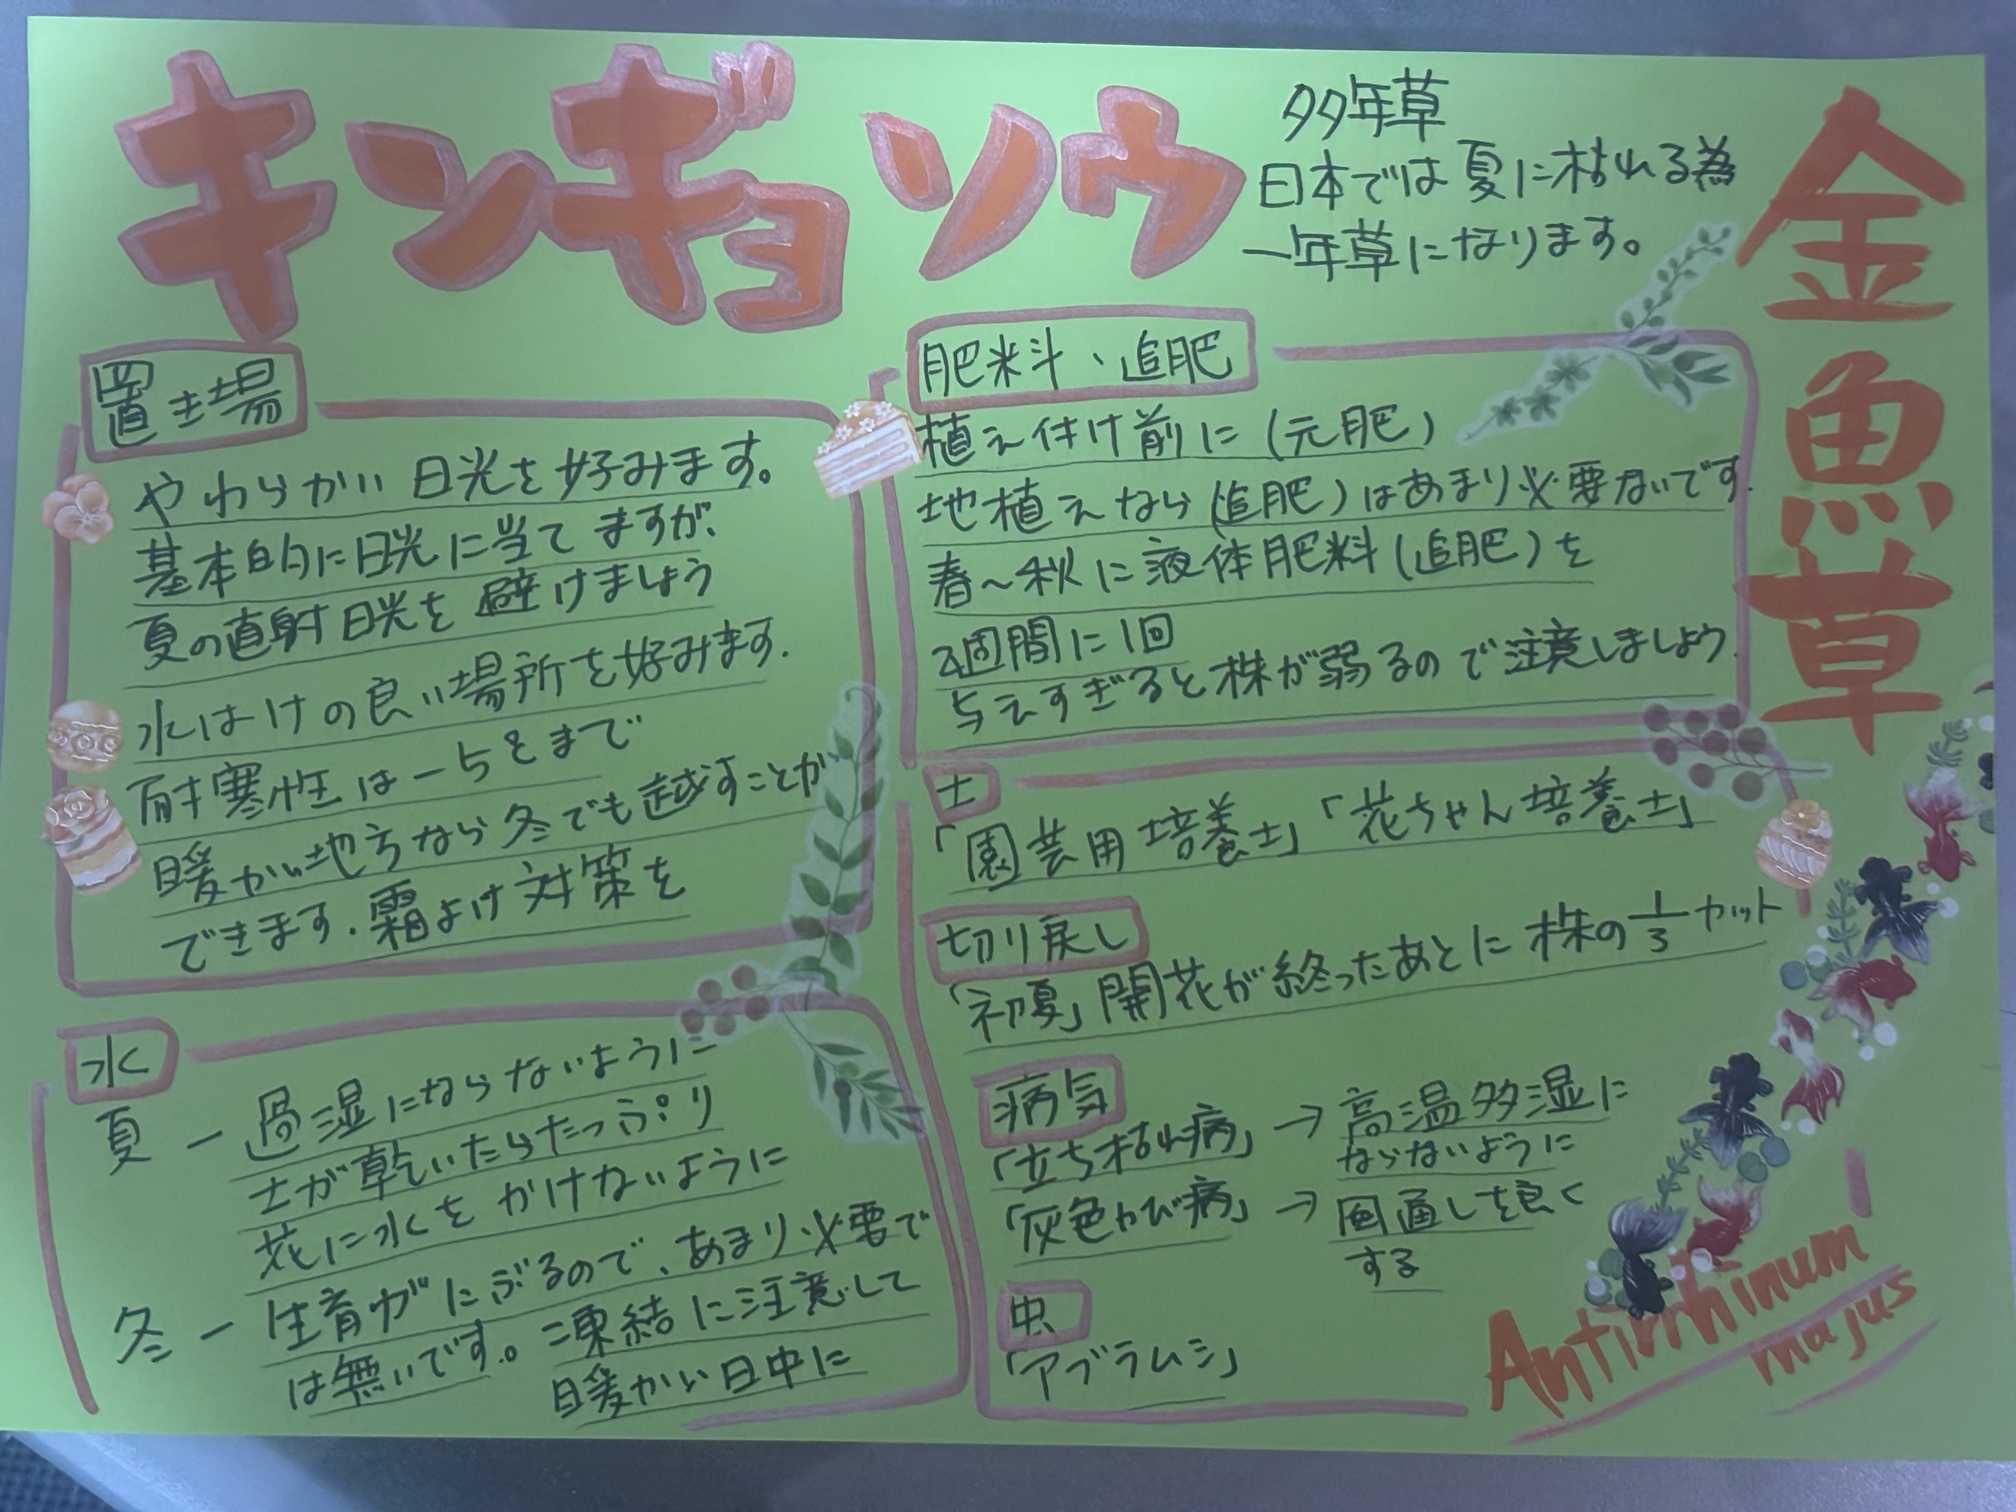 キンギョソウ
多年草
日本では夏に枯れる為
一年草になります。
金魚草
置き場
やわらかい日光を好みます。
基本的に日光に当てますが、
夏の直射日光を避けましょう
水はけの良い場所を好みます.
耐寒性は-5℃まで
暖かい地方なら冬でも越すことが
できます.霜よけ対策を
水
夏-過湿にならないように
土が乾いたらたっぷり
花に水をかけないように
冬-生育がにぶるので、あまり必要で
は無いです。凍結に注意して
暖かい日中に
肥料、追肥
植え付け前に(元肥)
地植えなら(追肥)はあまり必要ないです.
春~秋に液体肥料(追肥)を
2週間に1回
与えすぎると株が弱るので注意しましょう.
土
「園芸用培養土」「花ちゃん培養土」
切り戻し
「初夏」開花が終ったあとに株の1/3カット
病気
「立ち枯れ病」→高温多湿に
ならないように
「灰色かび病」→風通しを良く
する
虫
「アブラムシ」
Antirrhinum
majus